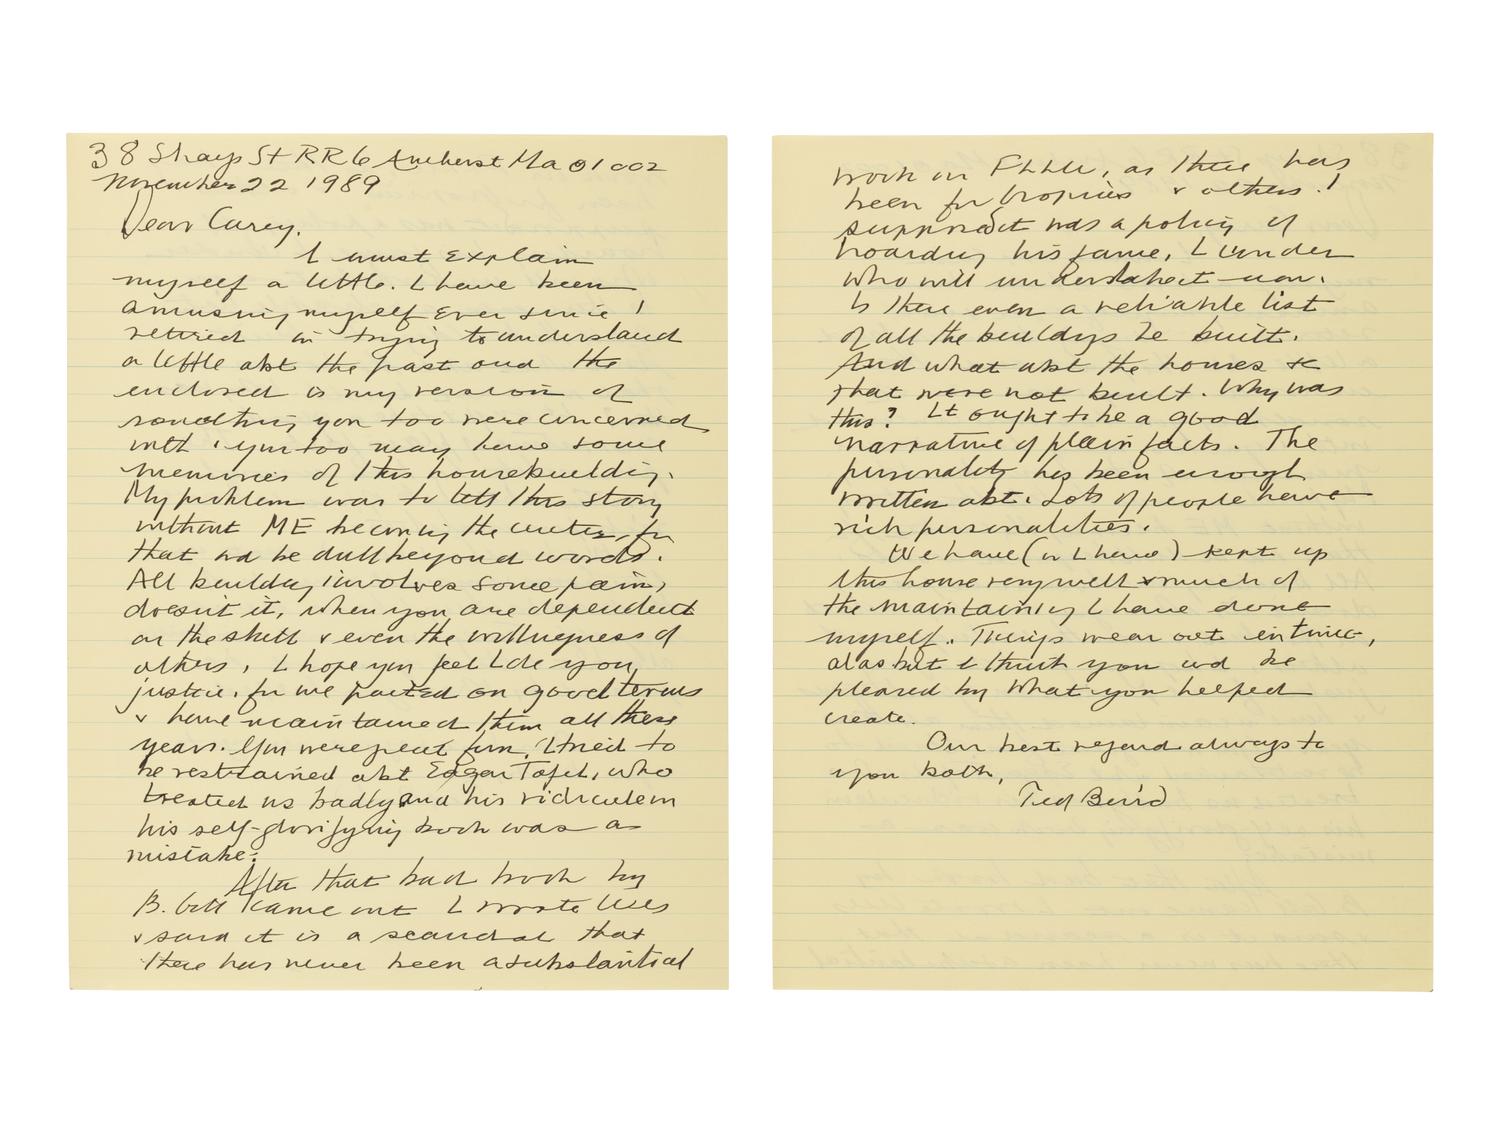 38 Shays St RR6 Amherst Ma 01002
November 22 1989
Dear Carey,
I must explain
myself a little. I have been
amusing myself ever since I
retired in trying to understand
a little abt the past and the
enclosed is my version of
something you too were concerned
with. You too may have some
memories of this housebuilding.
My problem was to tell this story
without ME becoming the center, for
that wd be dull beyond words.
All building involves some pain,
doesn't it, when you are dependent
on the skill & even the willingness of
others. I hope you feel I do you
justice, for we parted on good terms
& have maintained them all these
years. You were great fun. I tried to
be restrained abt Edgar Tafel, who
treated us badly and his ridicule in
his self-glorifying book was a
mistake.
After that bad book by
B. Gill came out I wrote
& said it is a scandal that
there has never been a substantial
work on FLLW, as there has
been for & others. I
supposed it was a policy of
hoarding his fame. I wonder
who will undertake it now.
Is there even a reliable list
of all the buildgs he built.
And what abt the homes &c
that were not built. Why was
this? It ought to be a good
narrative of plain facts. The
personality has been enough
written abt. Lots of people have
rich personalities.
We have (or I have) kept up
this house very well & much of
the maintaining I have done
myself. Things wear out in time,
alas but I think you wd be
pleased by what you helped
create.
Our best regard always to
you both,
Ted Baird